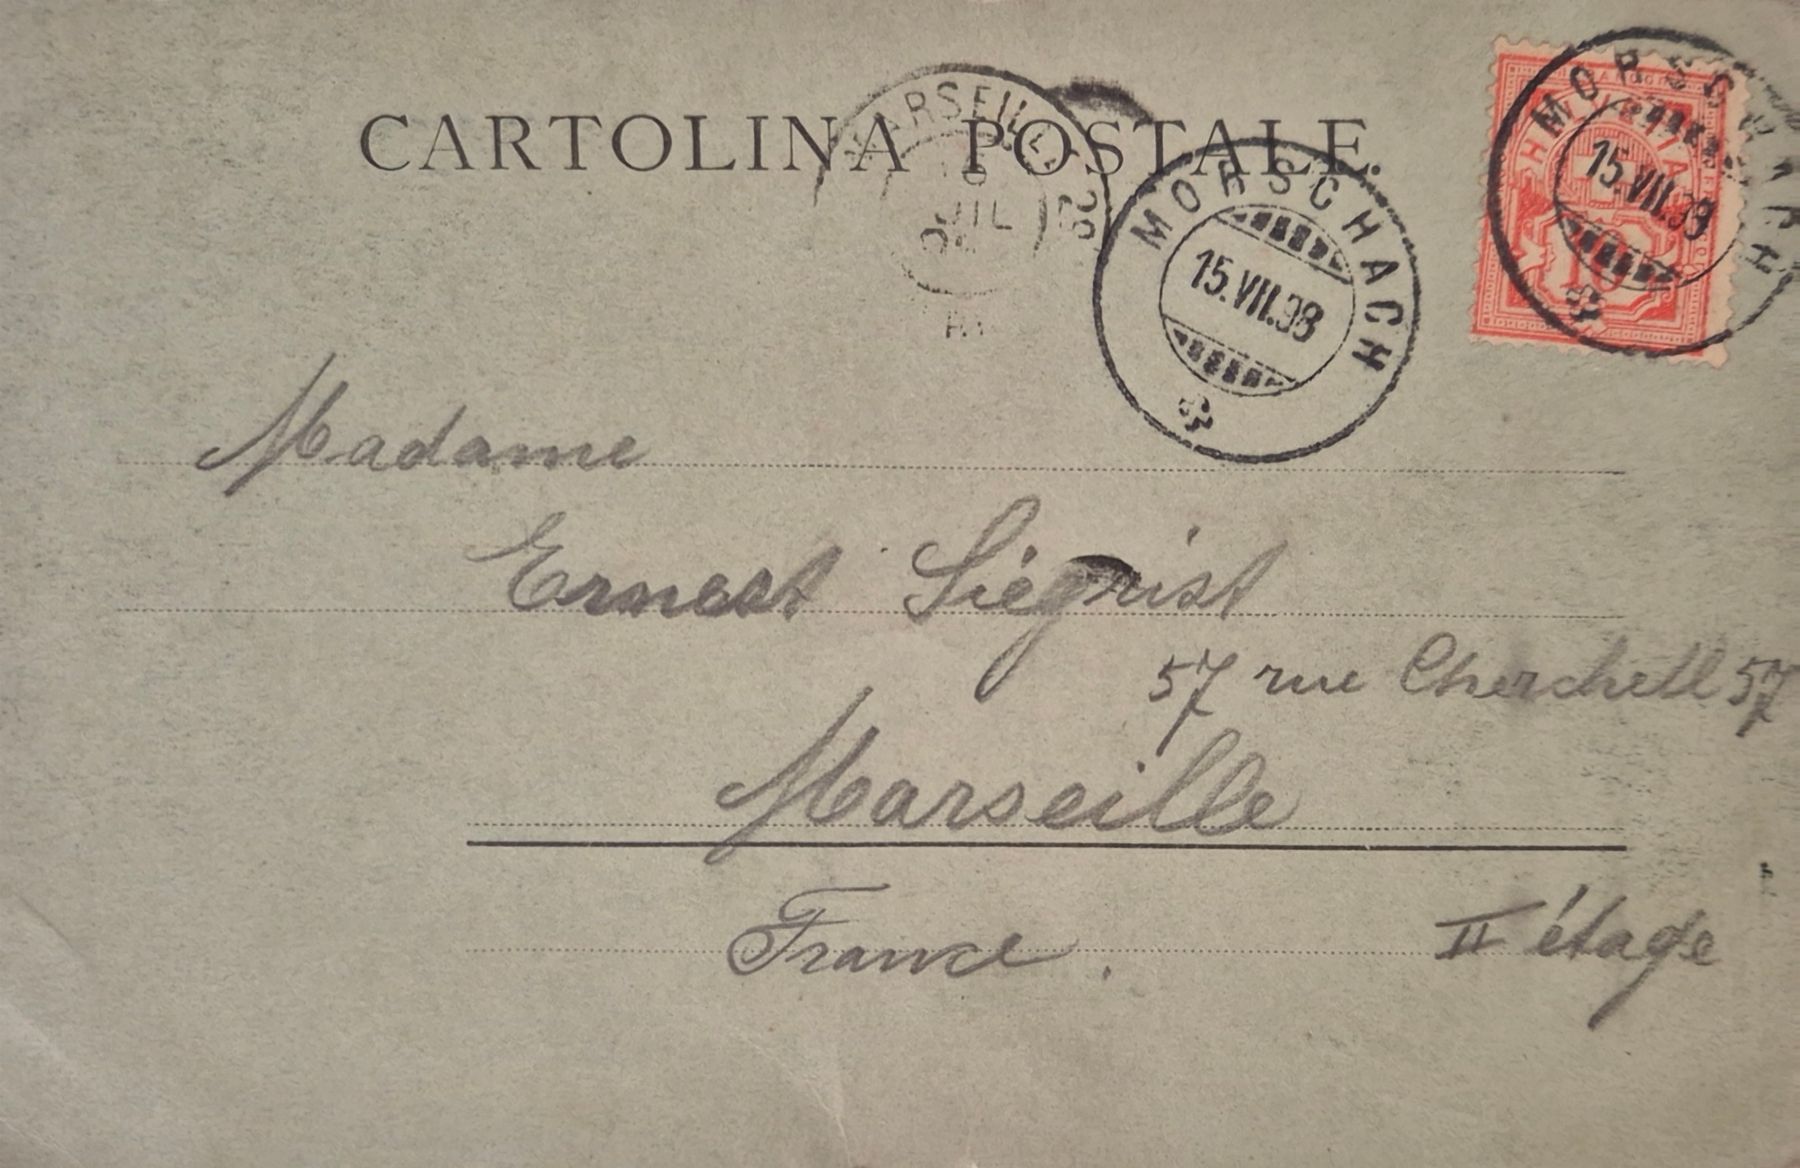 CARTOLINA POSTALE.
MARSEILLE
JUIL
MORSCHACH
15.VII.98
MORSCHACH
15.VII.98
Madame
Ernest Siégrist
57 rue Cherchell 57
Marseille
France.
II étage